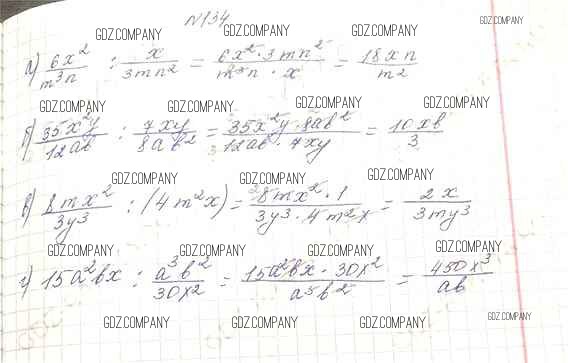 №134
GDZ.COMPANY GDZ.COMPANY GDZ.COMPANY
а) 6x²/m³n : x/3mn² = 6x²·3mn²/m³n·x = 18xn/m²
GDZ.COMPANY GDZ.COMPANY GDZ.COMPANY GDZ.COMPANY
б) 35x²y/12ab : 7xy/8ab² = 35x²y·8ab²/12ab·7xy = 10xb/3
GDZ.COMPANY GDZ.COMPANY GDZ.COMPANY
в) 8mx²/3y³ : (4m²x) = 8mx²·1/3y³·4m²x = 2x/3my³
GDZ.COMPANY GDZ.COMPANY GDZ.COMPANY GDZ.COMPANY
г) 15a²bx : a³b²/30x² = 15a²bx·30x²/a³b² = 450x³/ab
GDZ.COMPANY GDZ.COMPANY GDZ.COMPANY GDZ.COMPANY